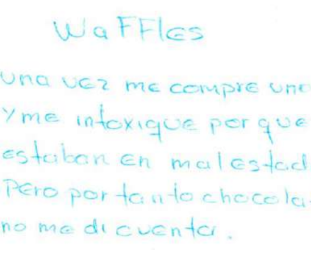 WaFFles
una vez me compre uno
y me intoxique por que
estaban en mal estad
Pero por tanto chocola
no me di cuenta.